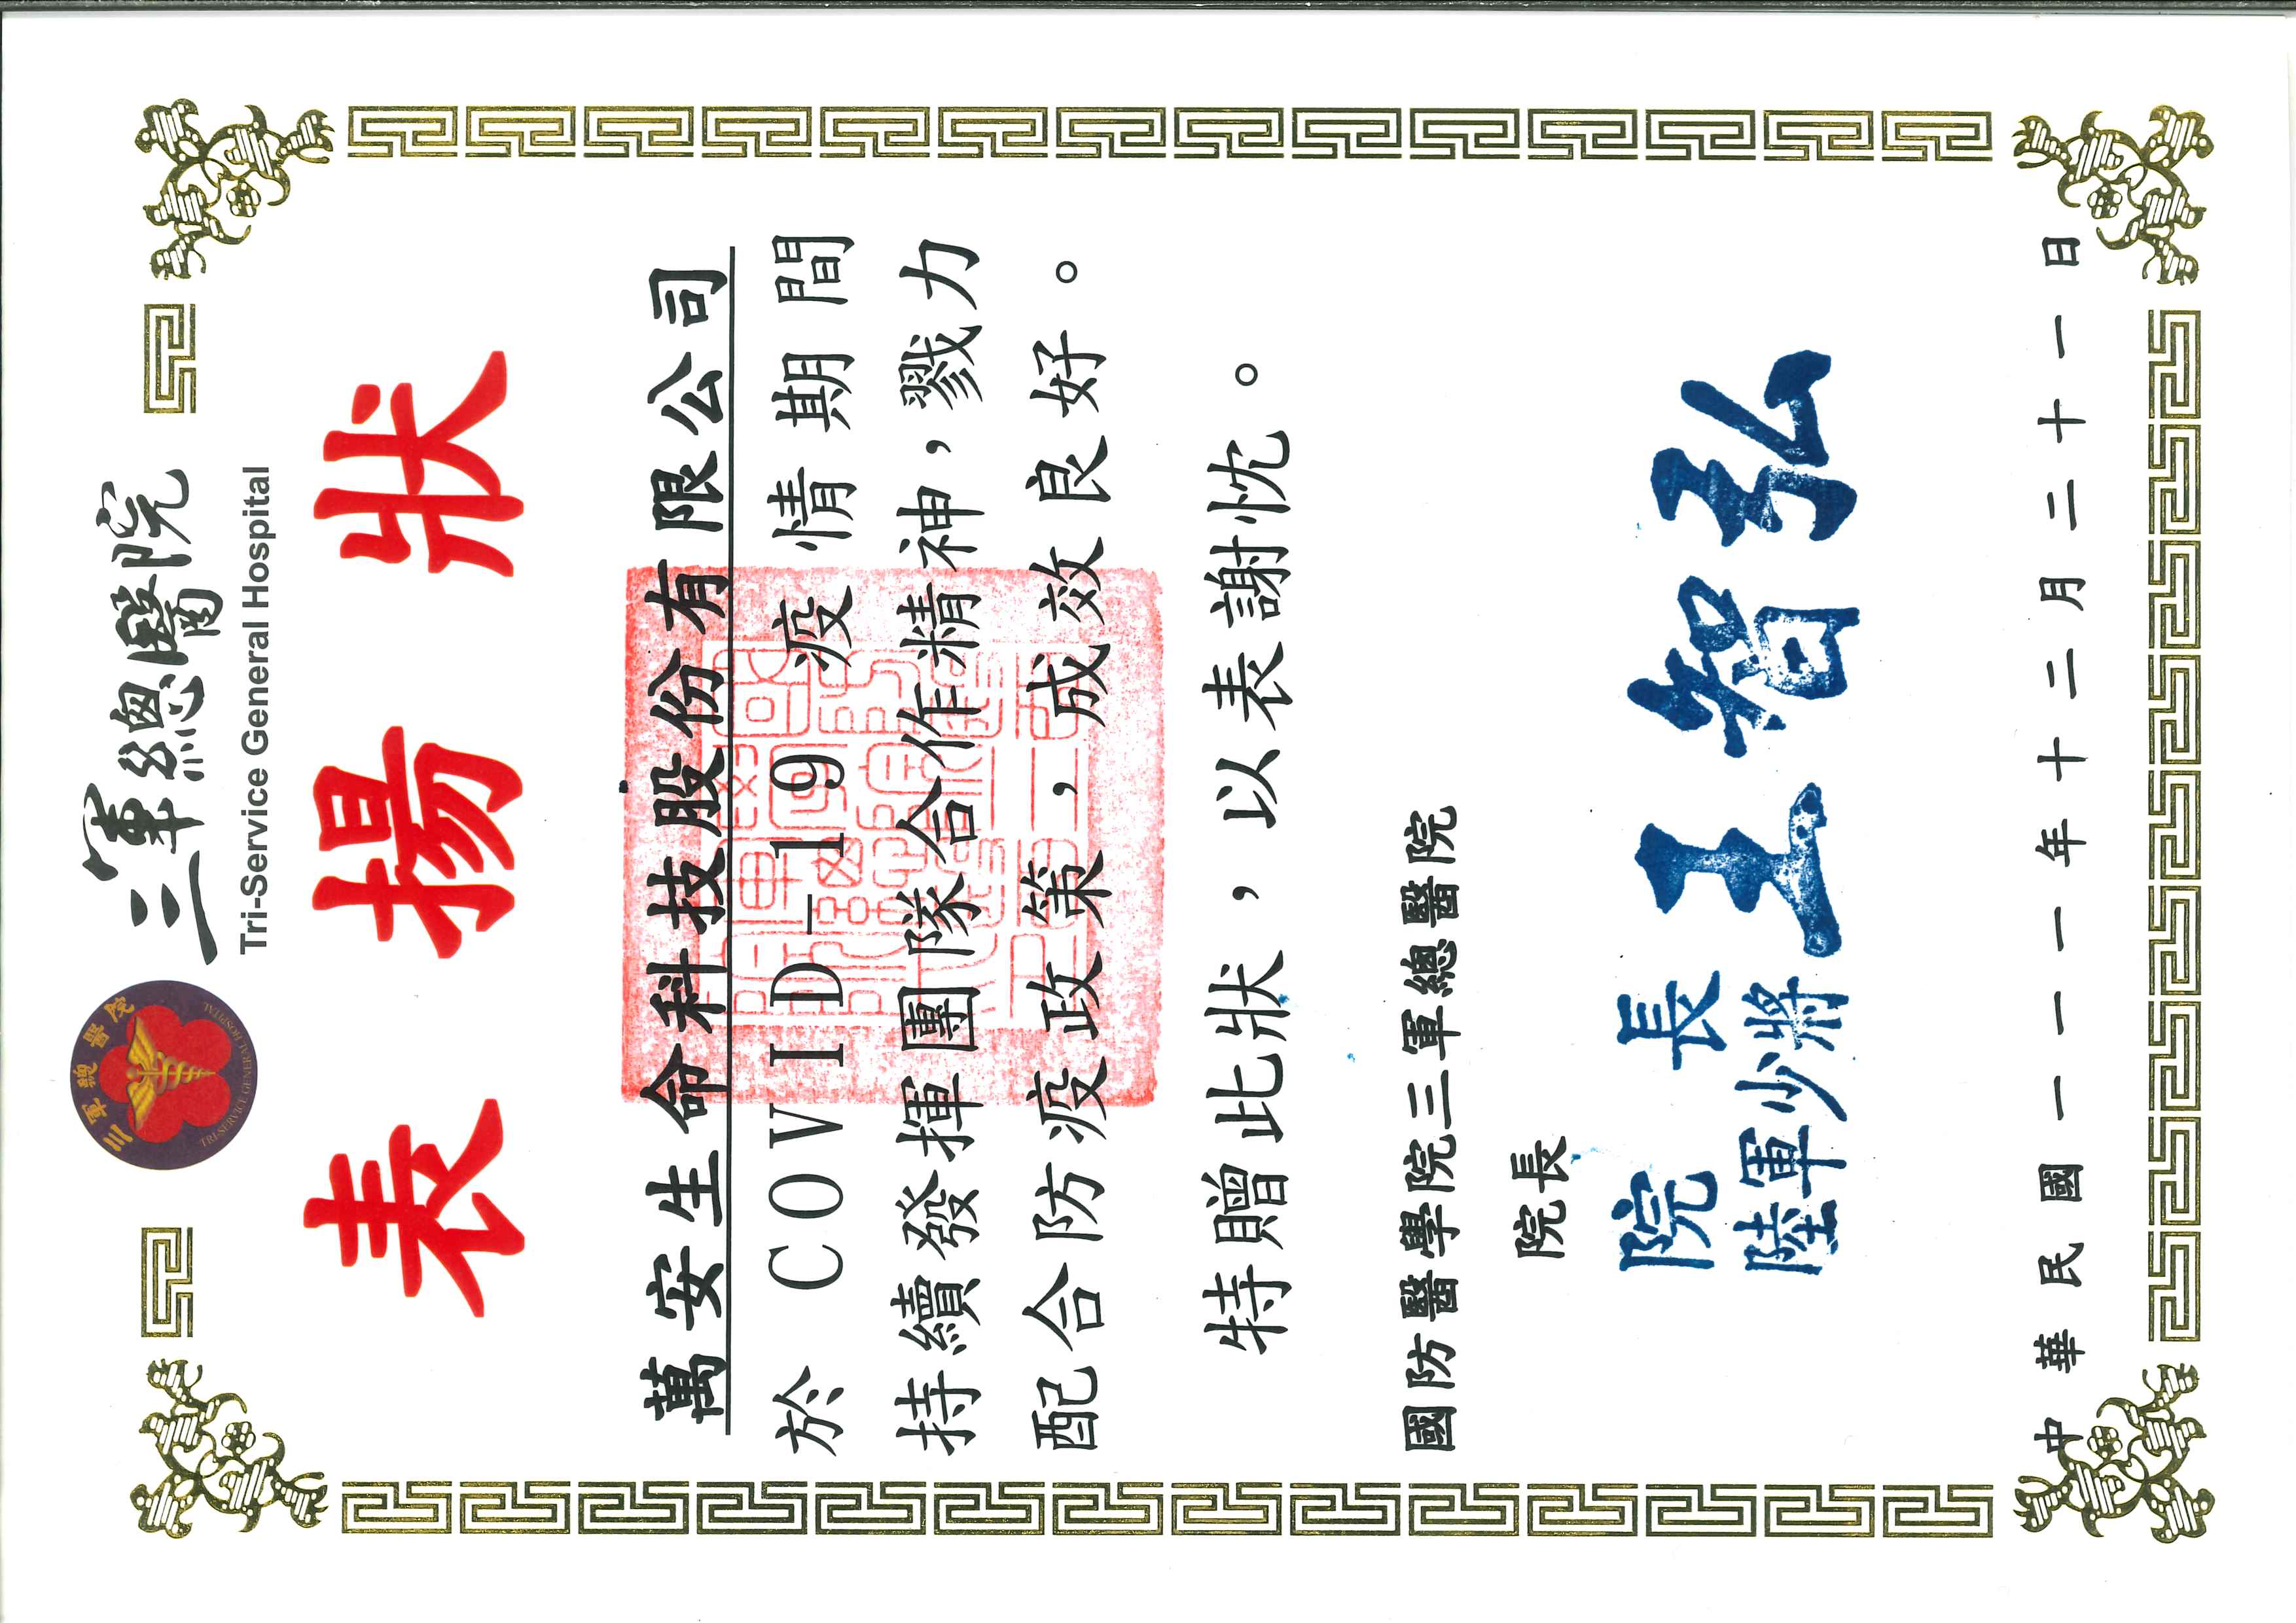 三軍總醫院
TRI-SERVICE GENERAL HOSPITAL
三軍總醫院
Tri-Service General Hospital
表揚狀
萬安生命科技股份有限公司
於 COVID-19 疫情期間
持續發揮團隊合作精神，戮力
配合防疫政策，成效良好。
特贈此狀，以表謝忱。
國防醫學院三軍總醫院
院長
院長
陸軍少將
王智弘
中華民國一一一年十二月二十一日